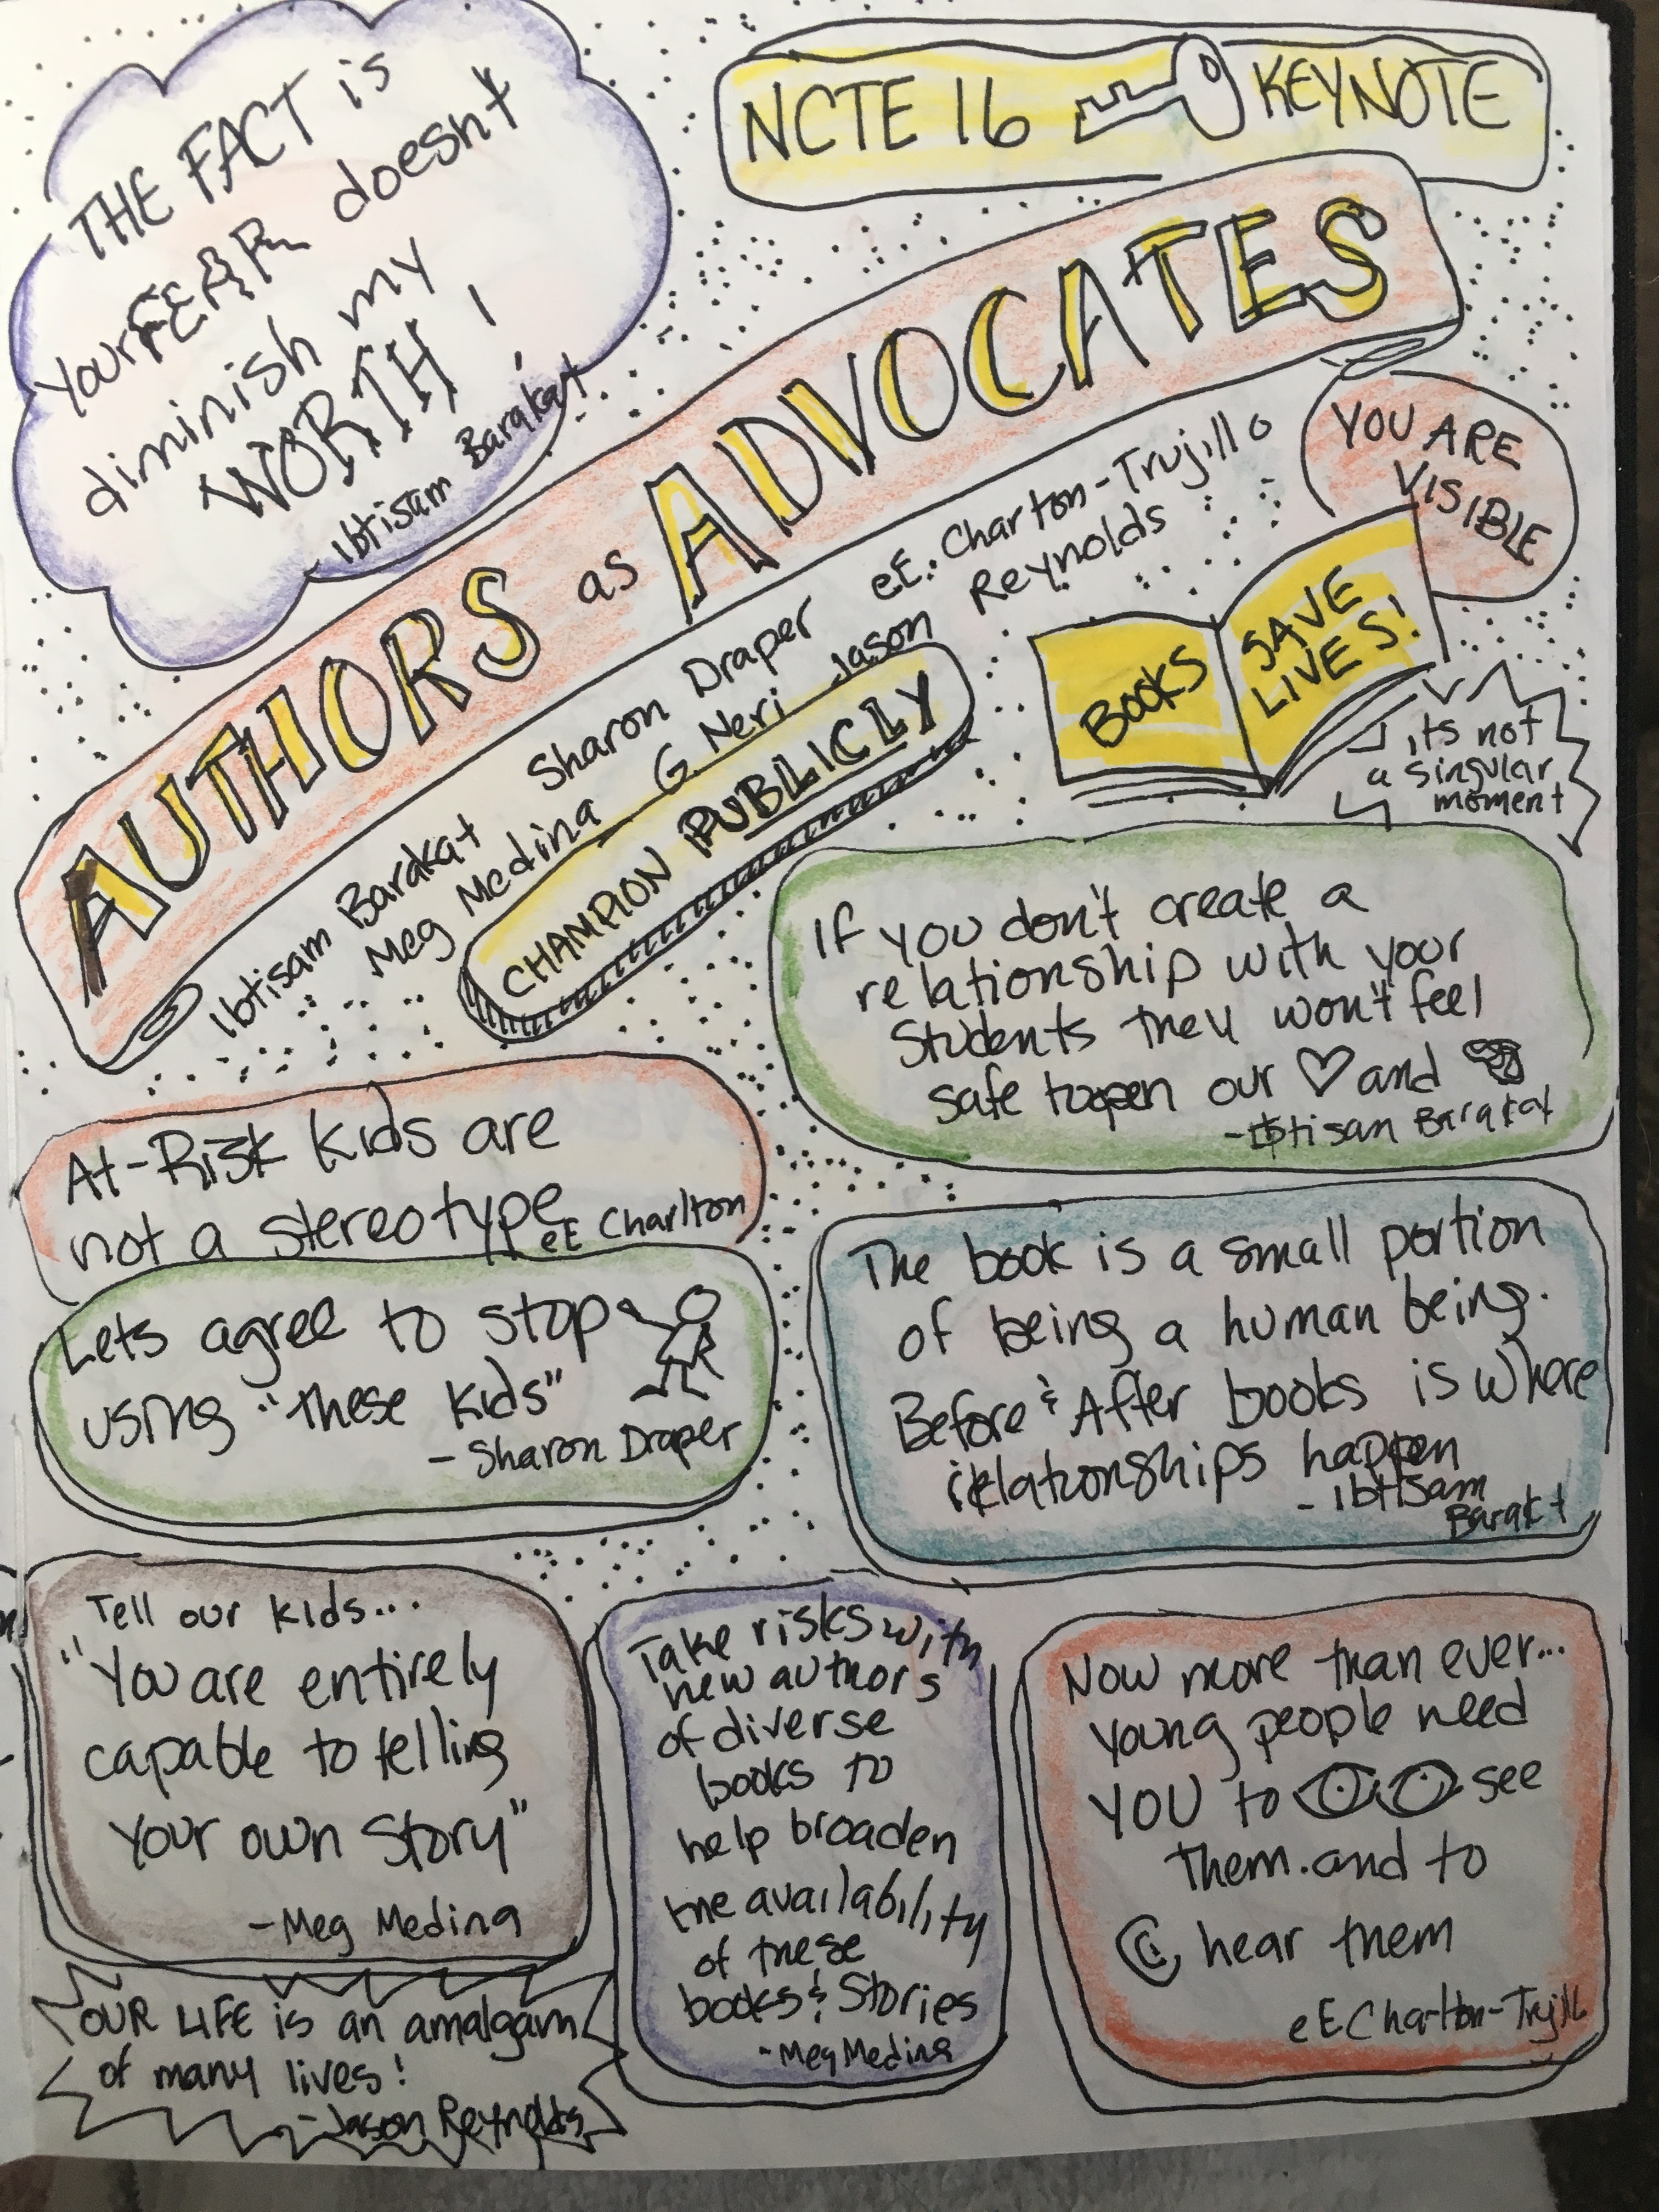 THE FACT is
your FEAR doesn't
diminish my
WORTH!
Ibtisam Barakat
NCTE 16 KEYNOTE
AUTHORS as ADVOCATES
Ibtisam Barakat Sharon Draper eE. Charton-Trujillo
Meg Medina G Neri Jason Reynolds
CHAMPION PUBLICLY
YOU ARE
VISIBLE
BOOKS
SAVE
LIVES!
its not
a singular
moment
If you don't create a
relationship with your
Students they won't feel
safe to open our and
-Ibtisan Barakat
At-Risk Kids are
not a stereotype
eE Charlton
Lets agree to stop
using "these kids"
- Sharon Draper
The book is a small portion
of being a human being.
Before & After books is where
relationships happen
- Ibtisam
Barakt
Tell our kids...
"You are entirely
capable to telling
your own Story"
-Meg Medina
Take risks with
new authors
of diverse
books to
help broaden
the availability
of these
books & Stories
-Meg Medina
Now more than ever...
young people need
YOU to see
them. and to
hear them
eE Charlton-Trujill
OUR LIFE is an amalgam
of many lives!
-Jason Reynolds